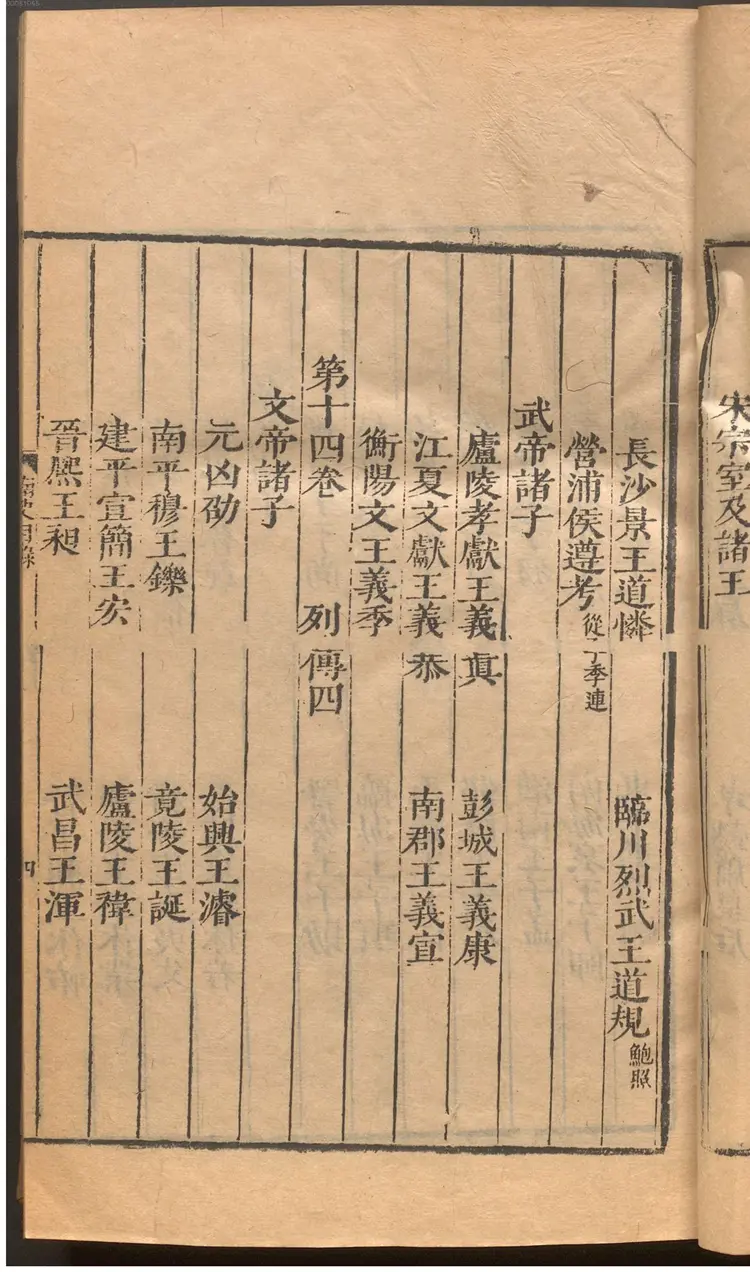 宋宗室及諸王
長沙景王道憐 臨川烈武王道規 鮑照
營浦侯遵考 從子季連
武帝諸子
廬陵孝獻王義真 彭城王義康
江夏文獻王義恭 南郡王義宣
衡陽文王義季
第十四卷 列傳四
文帝諸子
元凶劭 始興王濬
南平穆王鑠 竟陵王誕
建平宣簡王宏 廬陵王禕
晉熙王昶 武昌王渾
南史目錄 四